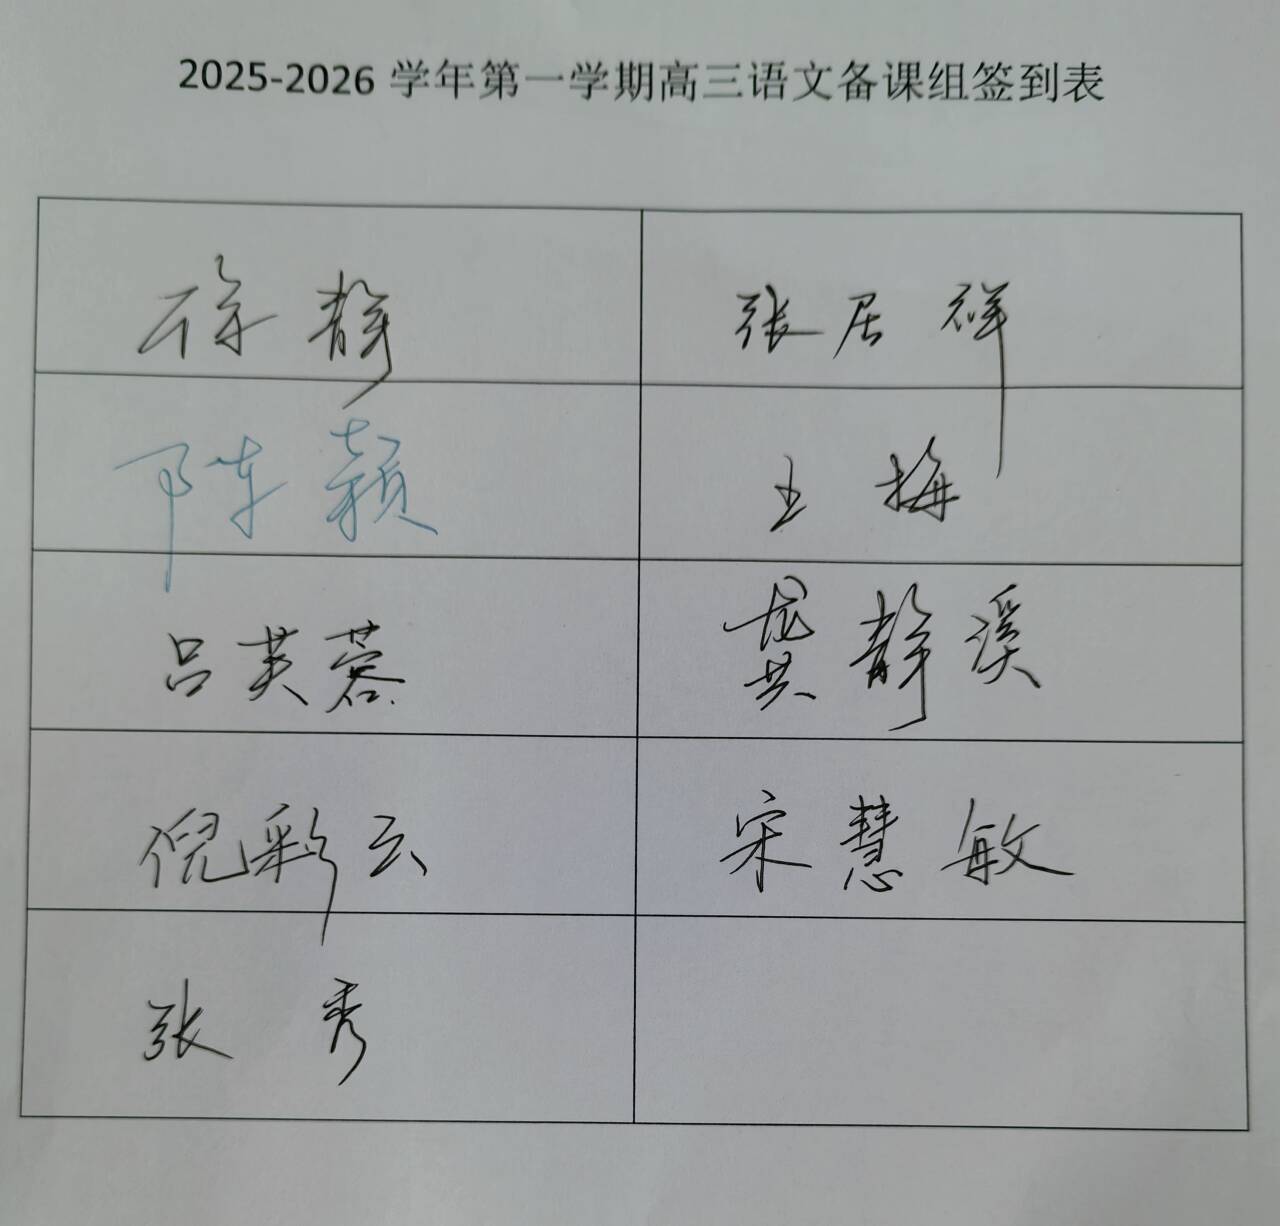 2025-2026 学年第一学期高三语文备课组签到表
徐静 张居祥
陈颖 王梅
吕芙蓉 龚静溪
倪彩云 宋慧敏
张秀